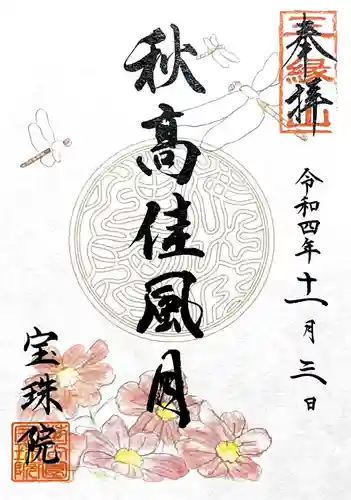 奉拝
三縁山
令和四年十一月三日
秋高佳風月
宝珠院